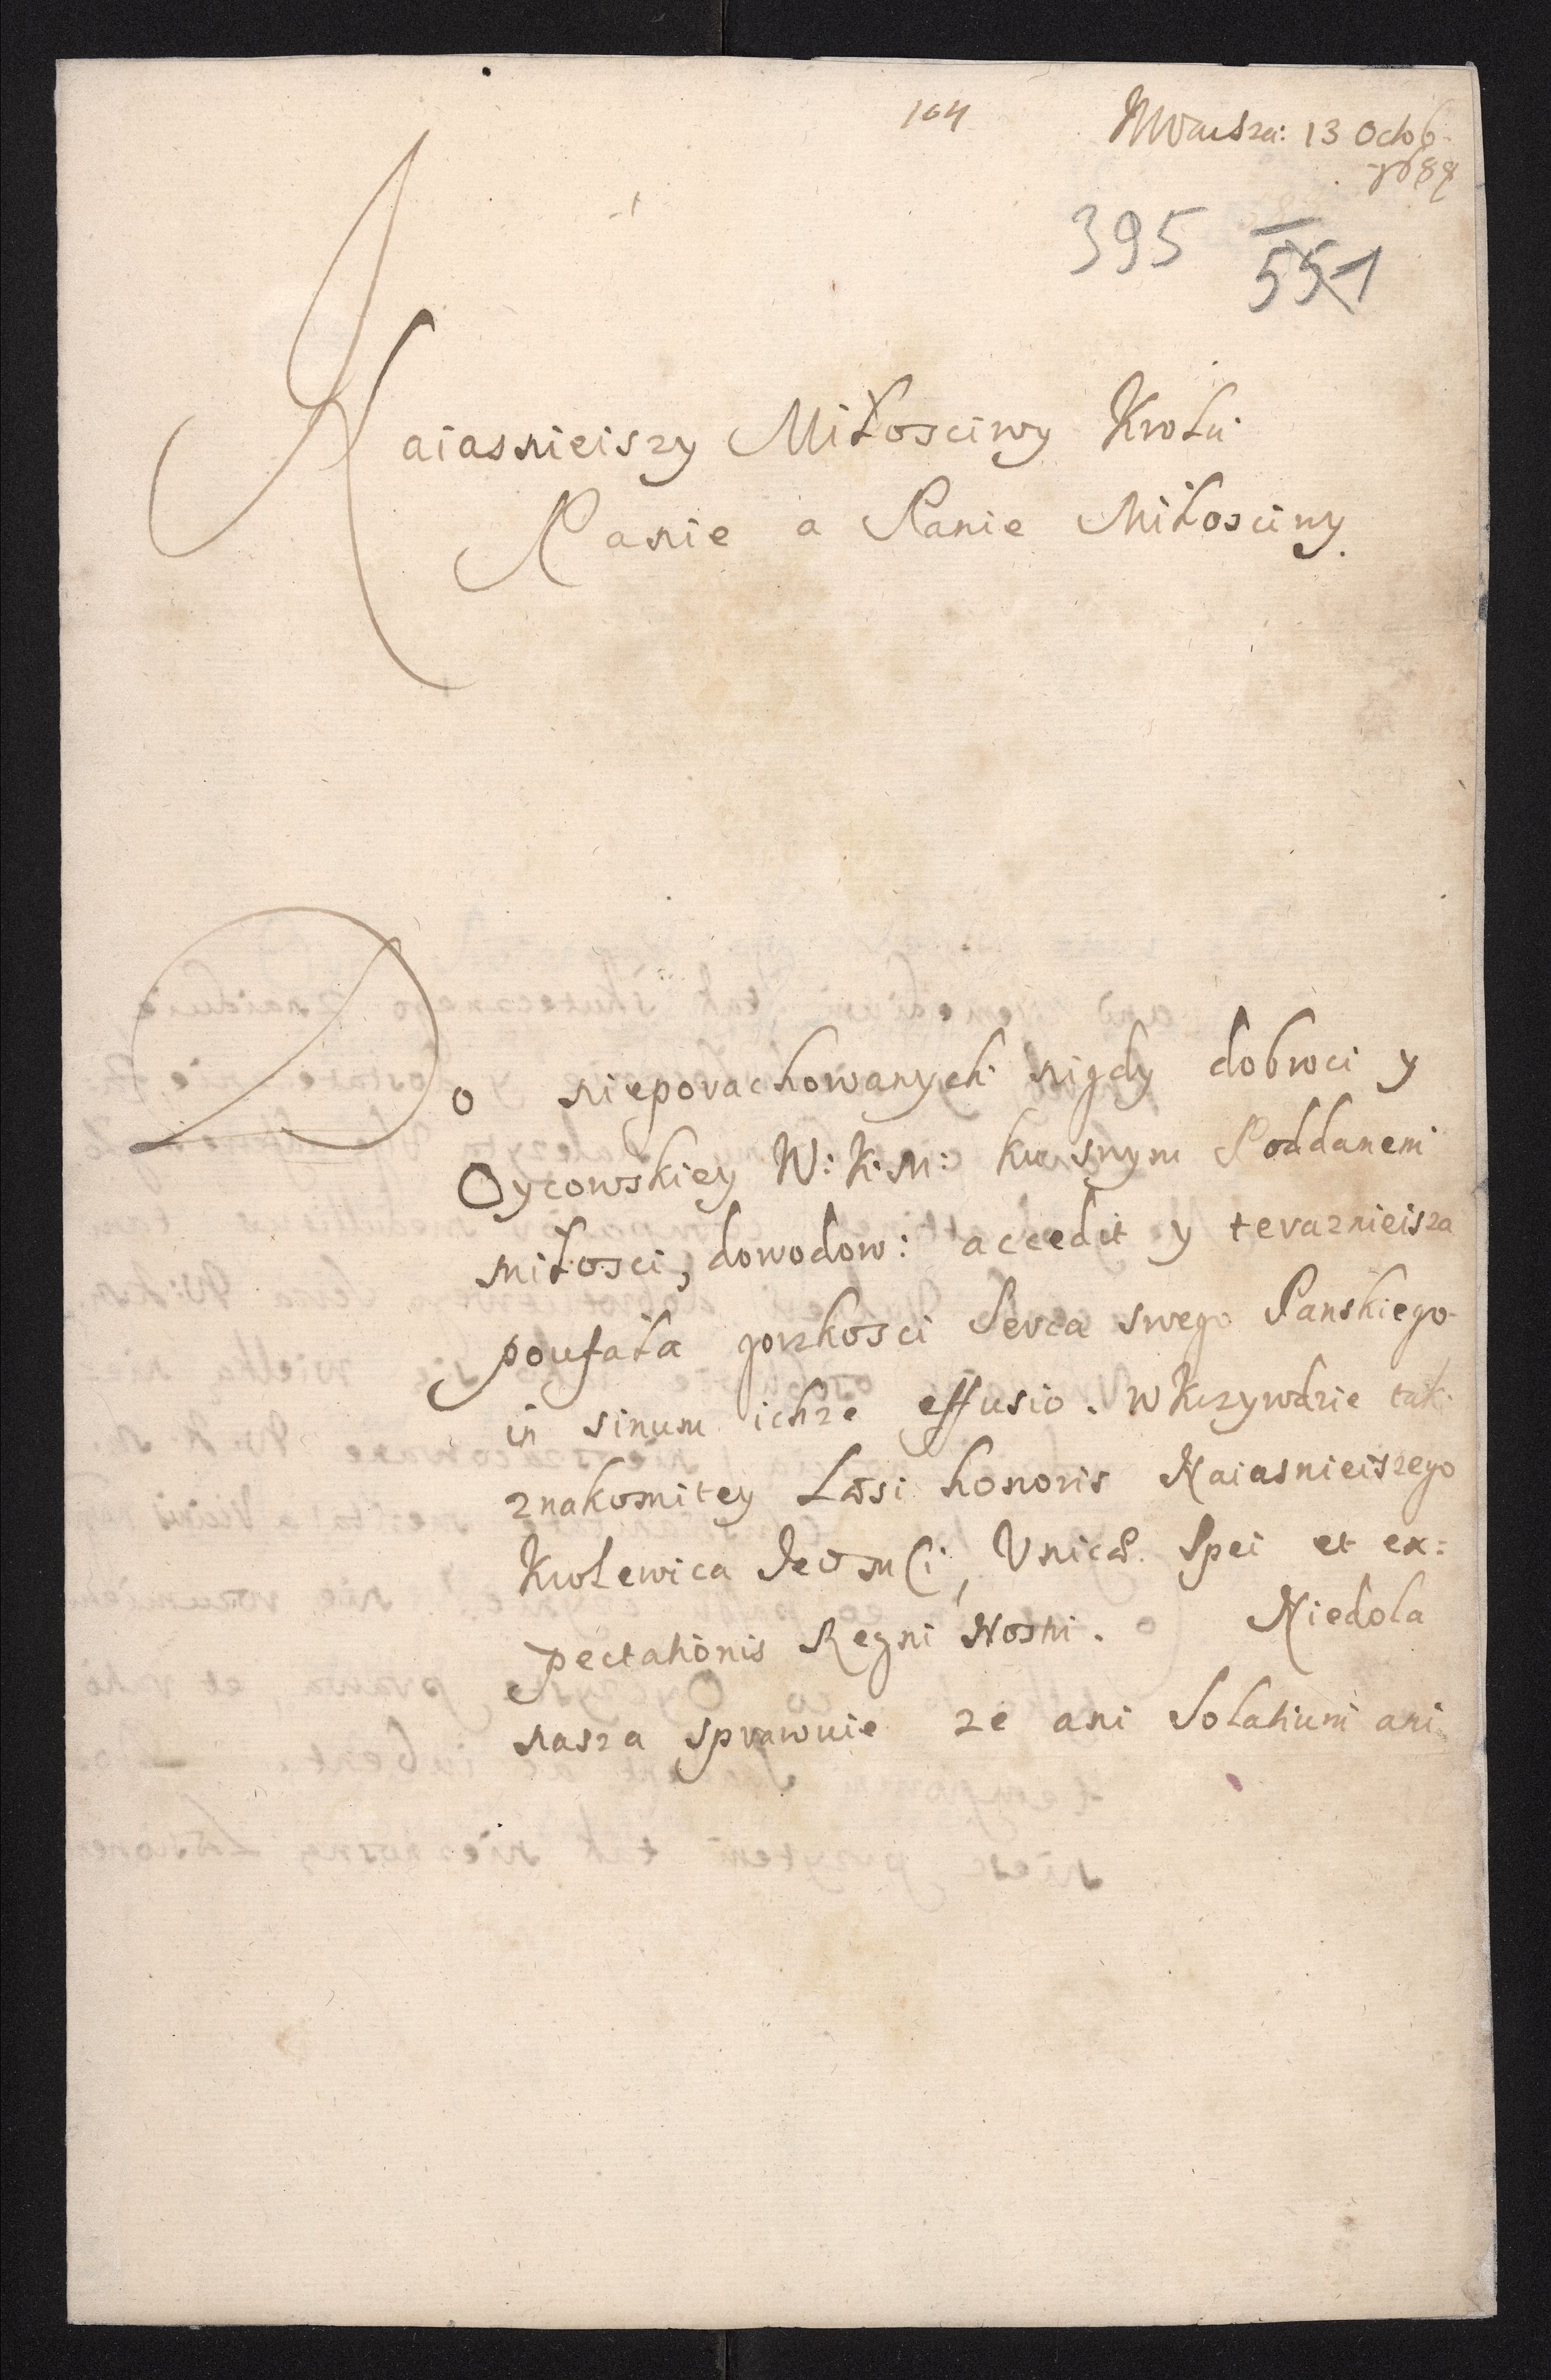 104
Warsza: 13 Octob.
1688
395 551
Naiasnieiszy Miłosciwy Krolu
Panie a Panie Miłosciwy.
Do nieporachowanych nigdy dobroci y
Oycowskiey W: K: M: ku swym Poddanem
miłosci, dowodow: accedit y terazniejsza
poufała gorzkosci Serca swego Panskiego
in sinum ichze effusio. w krzywdzie tak
znakomitey Læsi honoris Naiasnieiszego
Krolewica Jeo Mci, Unicæ Spei et ex:
pectationis Regni Nostri. Niedola
nasza sprawuie ze ani Solatium ani